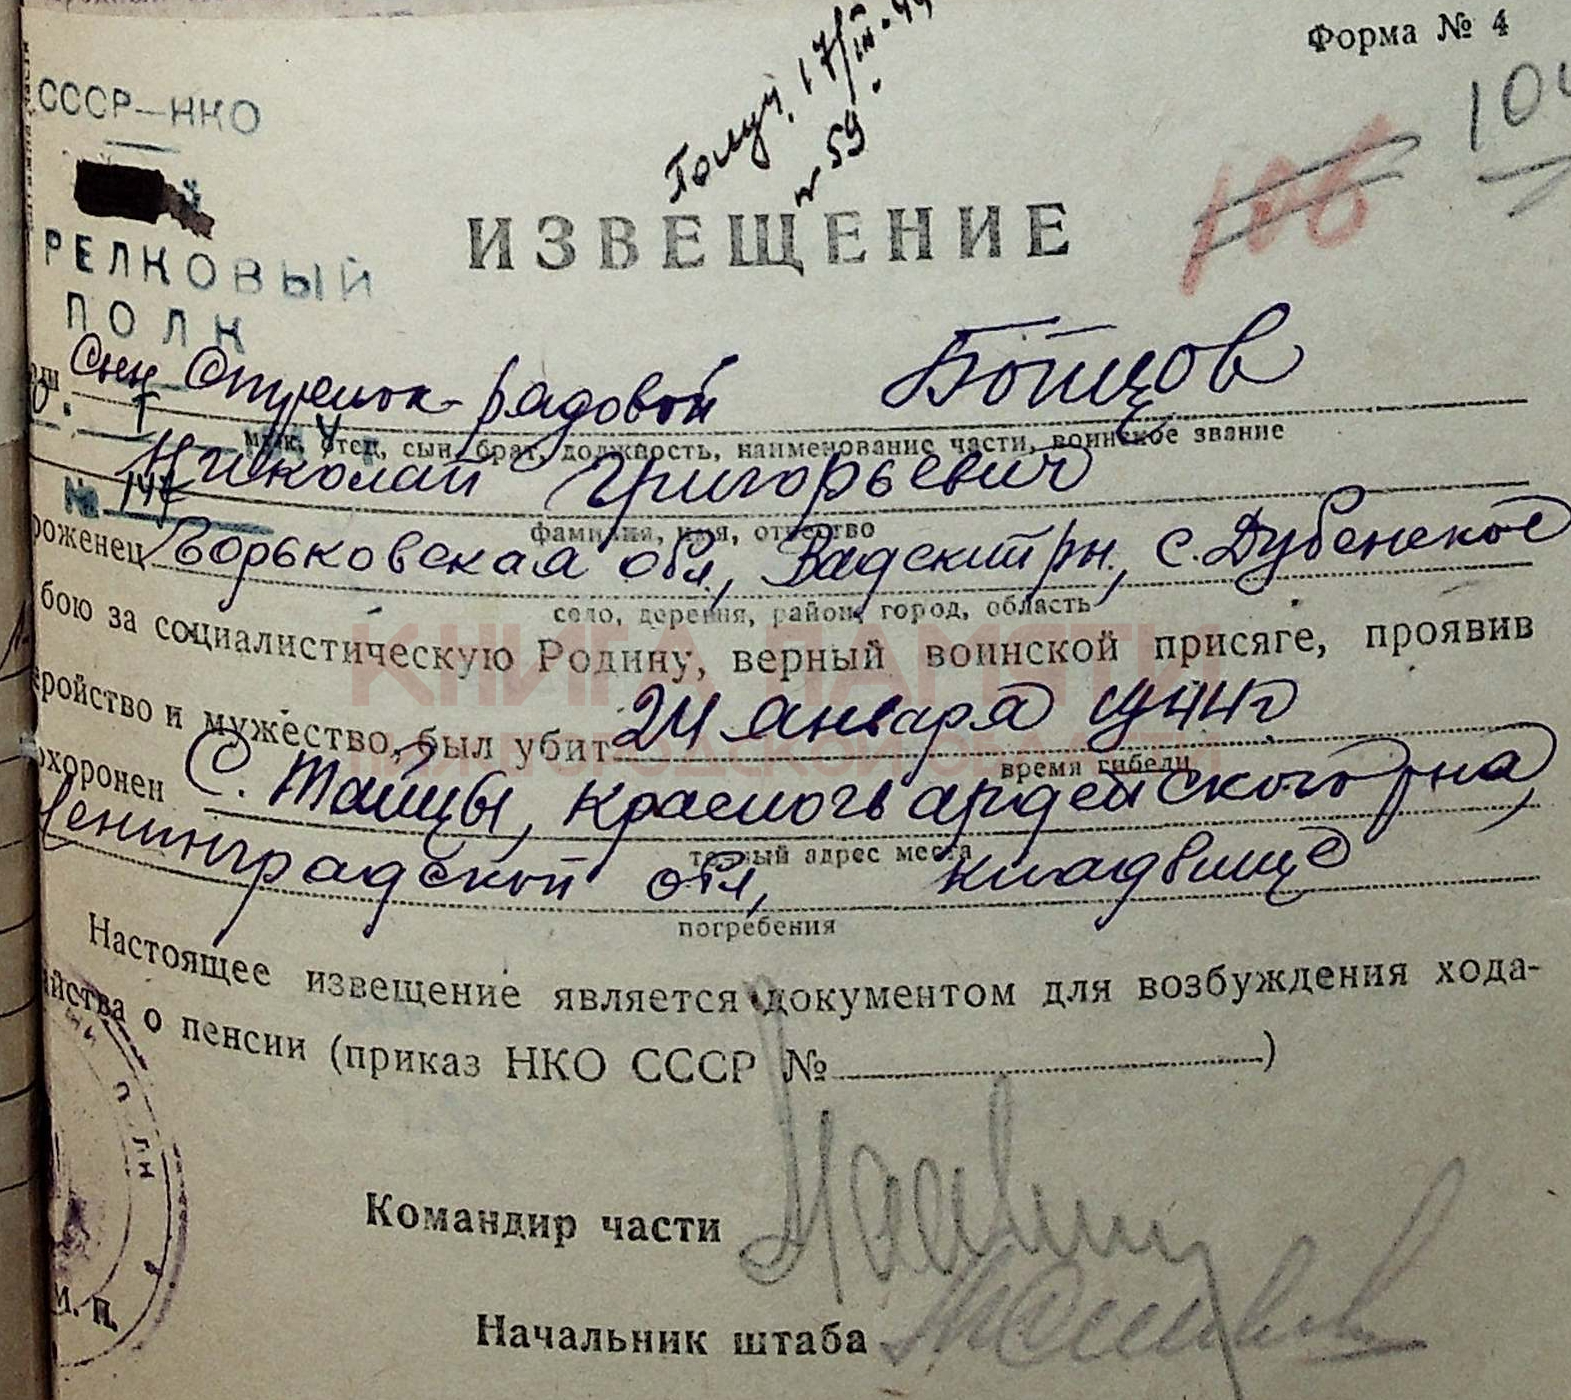 Форма № 4
Получ. 17/III-44
№ 59
104
106
СССР—НКО
РЕЛКОВЫЙ
ПОЛК
ИЗВЕЩЕНИЕ
аш сын Стрелок-рядовой Бойцов
муж, отец, сын, брат, должность, наименование части, воинское звание
Николай Григорьевич
№ 147
фамилия, имя, отчество
роженец Горьковская обл., Вадский рн., с. Дубенское
село, деревня, район, город, область
бою за социалистическую Родину, верный воинской присяге, проявив
еройство и мужество, был убит 24 января 1944г
время гибели
охоронен С. Тайцы, Красногвардейского р-на,
точный адрес места
Ленинградской обл, кладбище
погребения
Настоящее извещение является документом для возбуждения хода-
айства о пенсии (приказ НКО СССР № )
Командир части
М. П.
Начальник штаба
КНИГА ПАМЯТИ
НИЖЕГОРОДСКОЙ ОБЛАСТИ